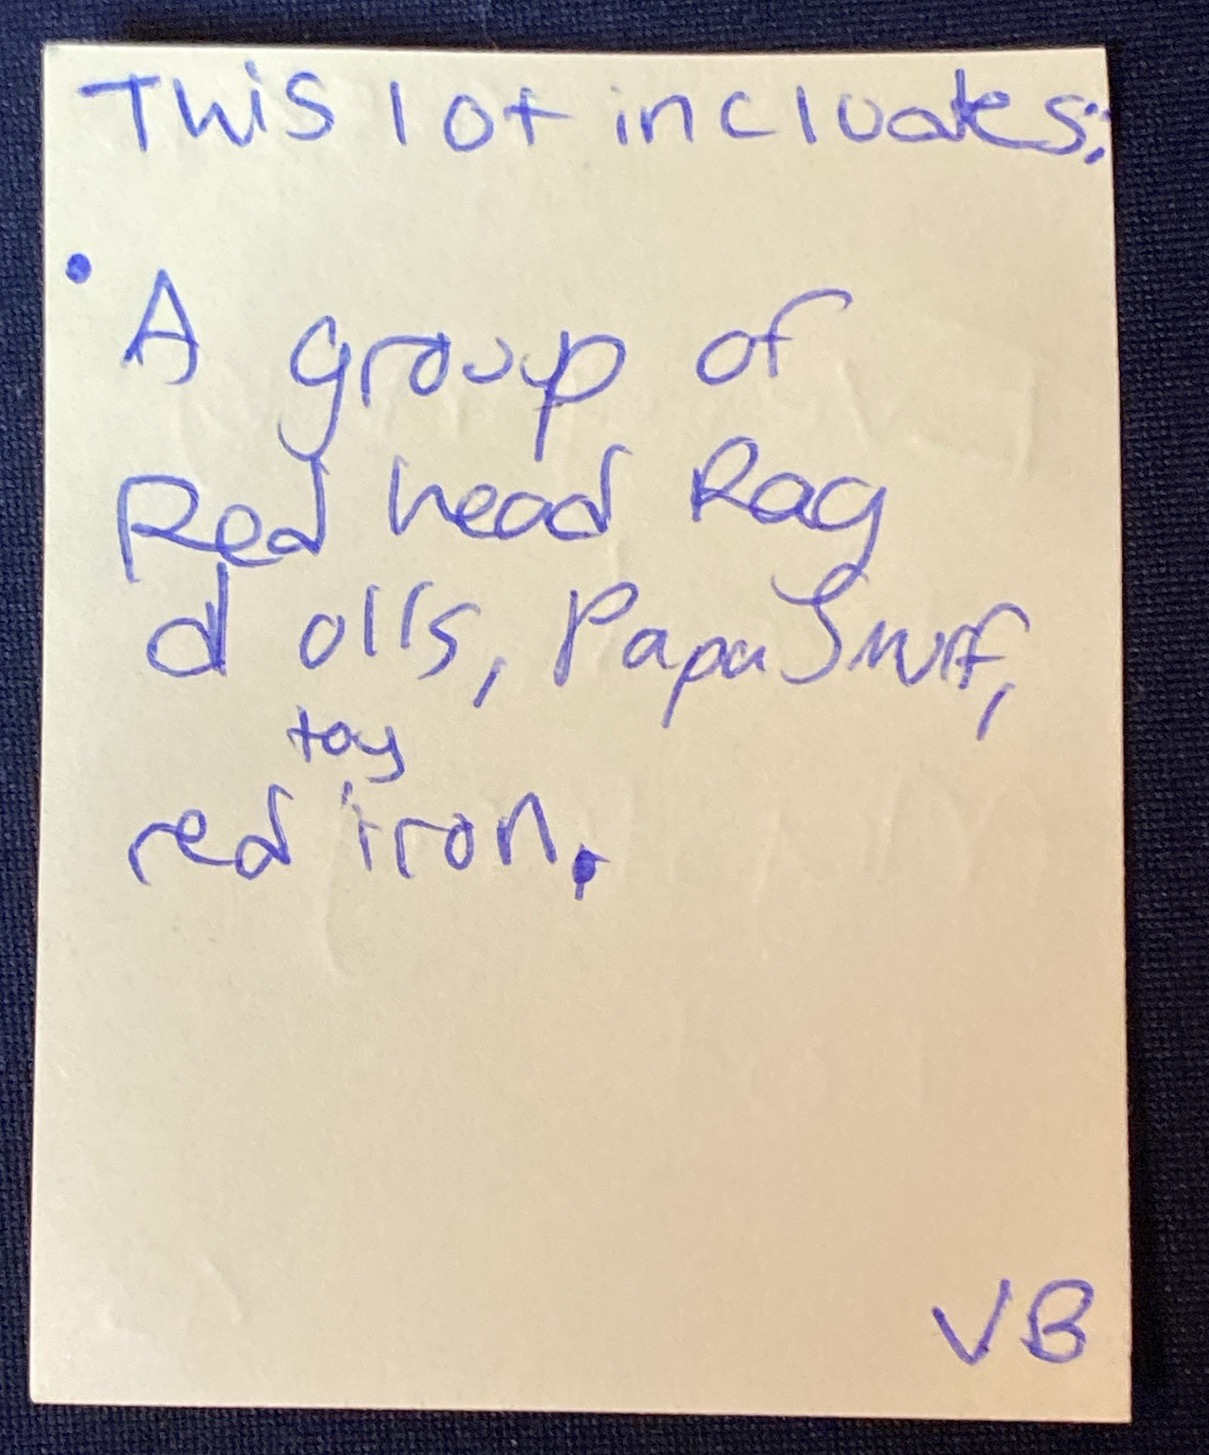 This lot includes;
• A group of
Red head Rag
dolls, Papa Smurf,
toy
red iron.
VB